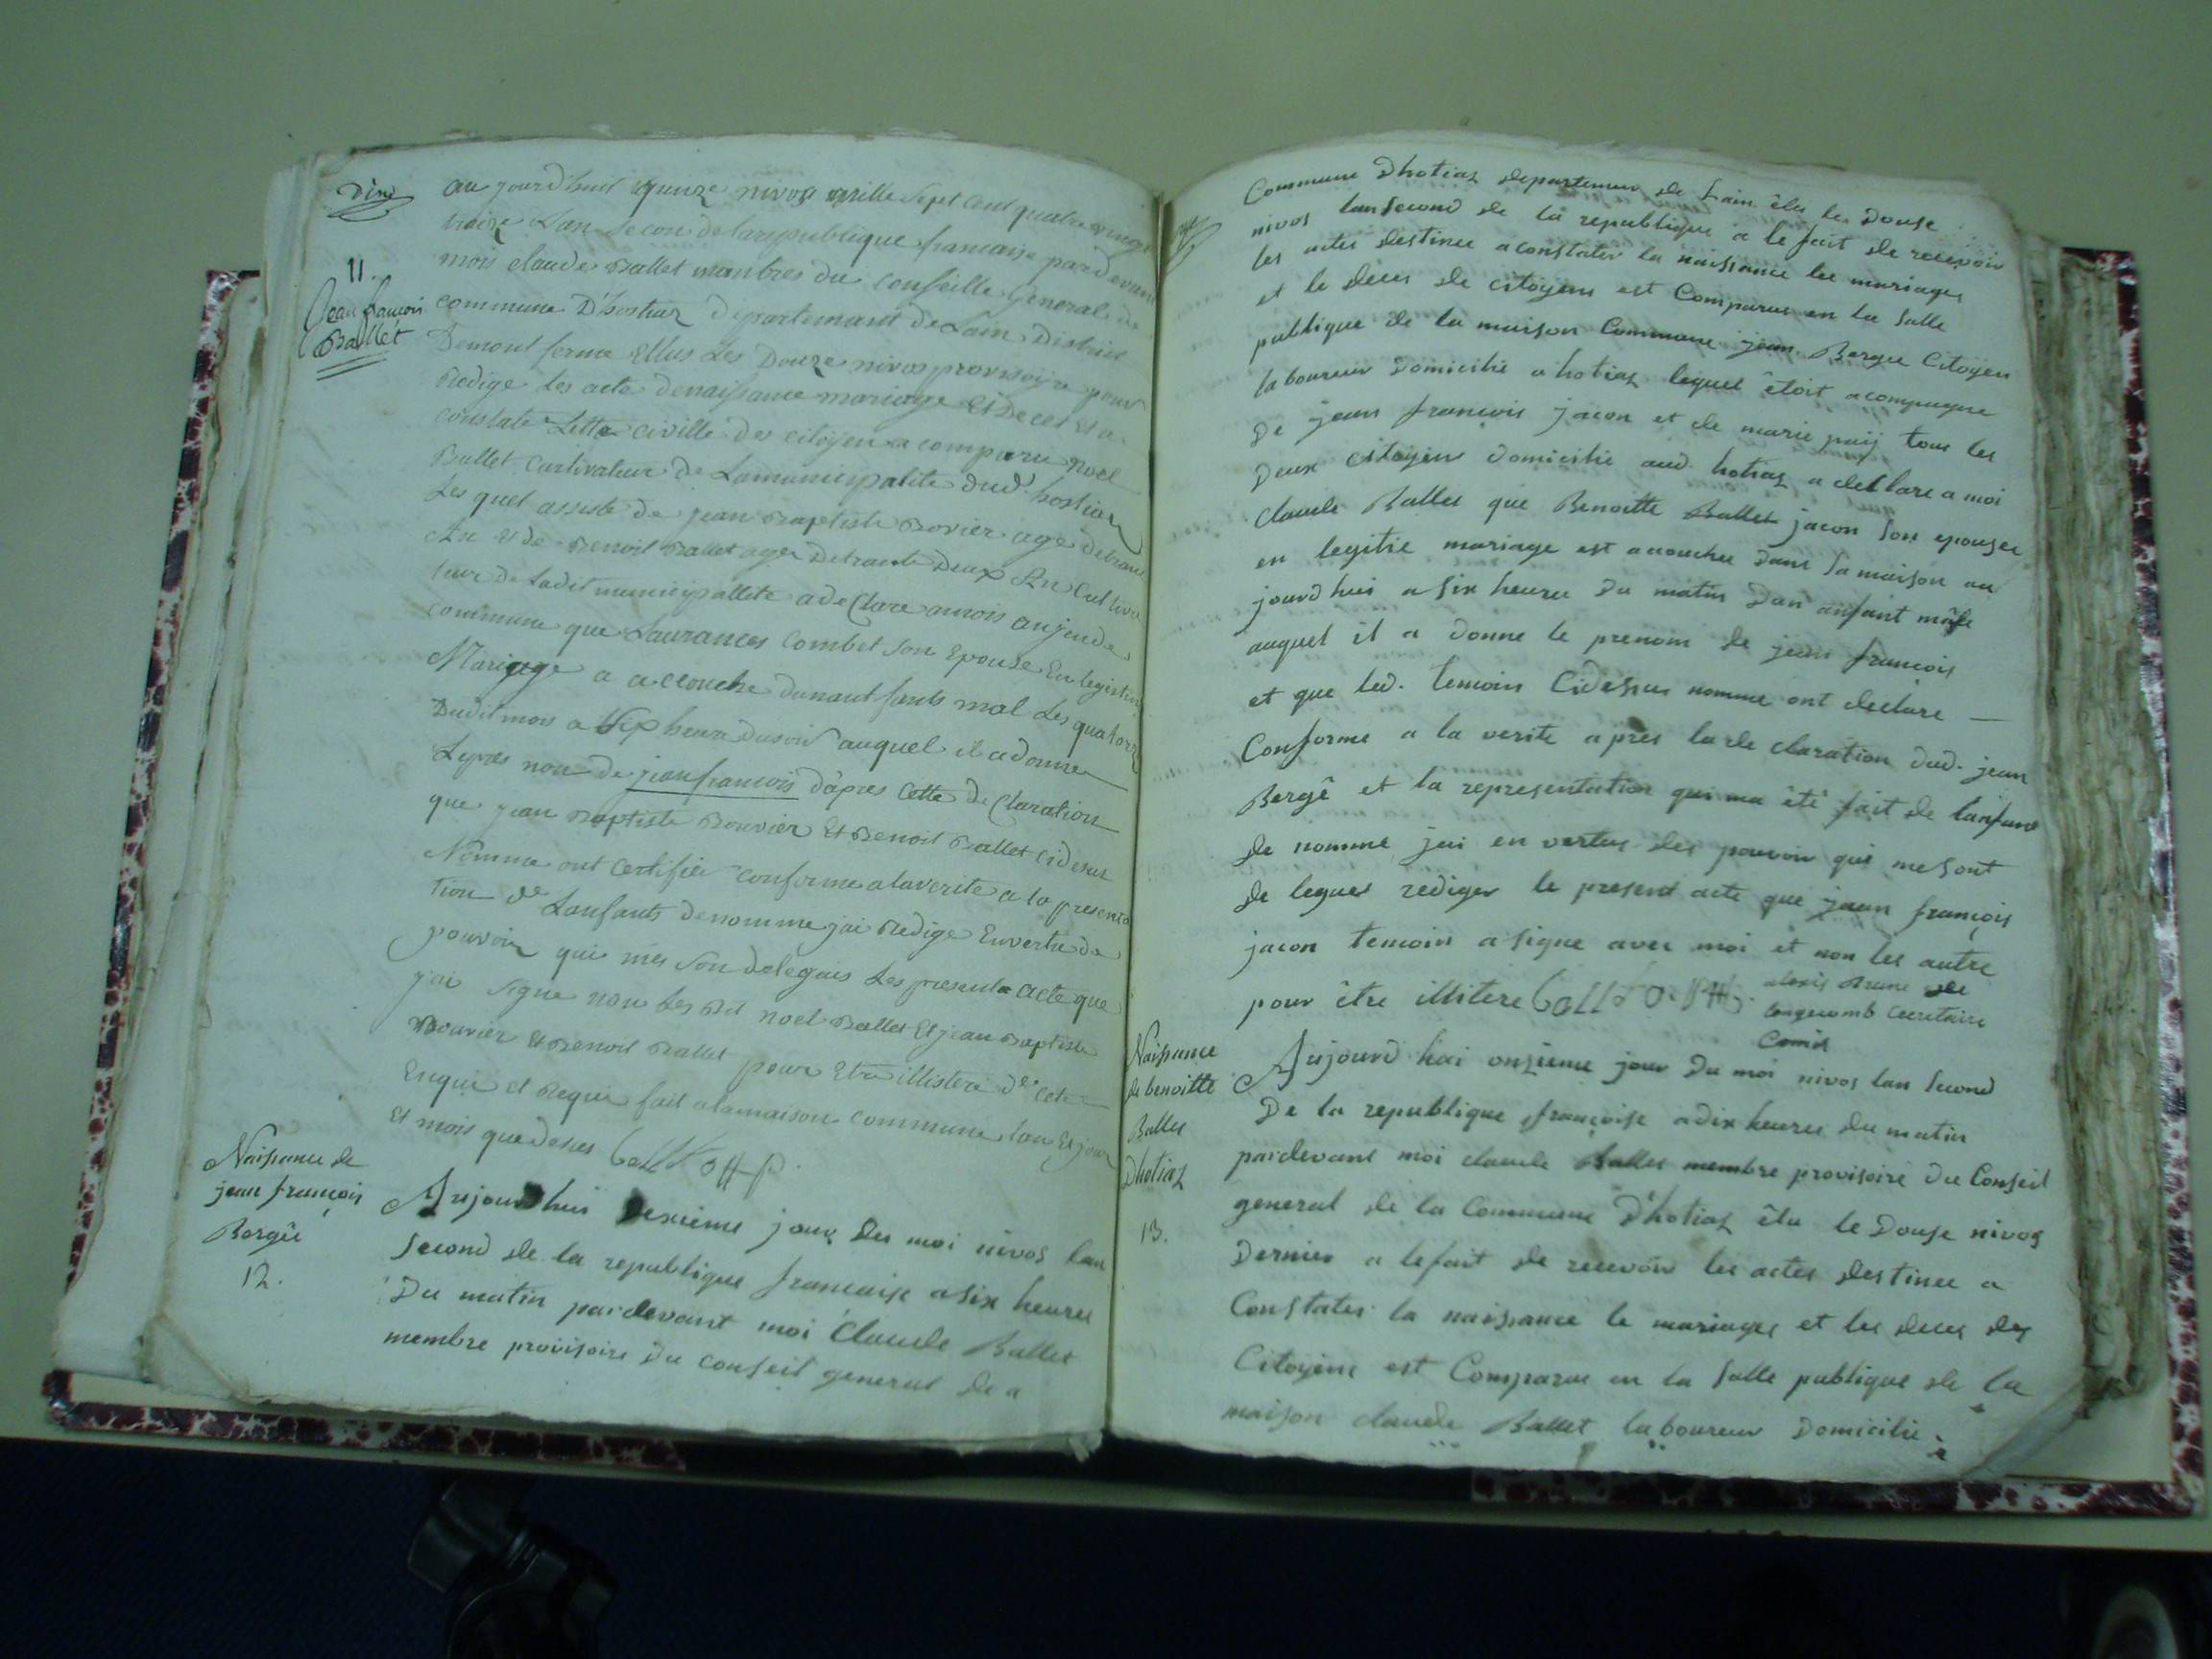 Dixe
11.
Jean francois
Ballet
au jourd'huit quinze nivose mille sept cent quatre vingt
traize Lan secon de la republique francaise pard evant
mois claude Ballet manbres du conseille general de
commune D'hostiaz departemant de Lain District
Demont ferme Ellus Les Douze nivos provisoire pour
Redige Les acte denaissance mariage Et De ces Et a
constate Letta civille des citoyen a comparu noel
Ballet Cultivateur de Lamunicipalite dud. hostiaz
Les quel assiste de jean Baptiste Bovier age detrant
An et de Benoit Ballet age Detrante Deux An Cultiva
teur de Ladit municipallite a de Clare amois
commune que Laurances Combet son Epouse En legistime
Mariage a a couche dunant fants mal Les quatorze
Dudit mois a Six heure du soir auquel il a donne
Lepres nom de jean francois d'apres Cette de Claration
que jean Baptiste Bouvier Et Benoit Ballet cidesus
Nomme ont certifier conforme a laverite a la presenta
tion de Lanfants denomme jai Redige Envertu de
pouvoir qui mes son delegues Les presente acte que
jai signe non Les Dit noel Ballet Et jean Baptiste
Bouvier Et Benoit Ballet pour Etre illistere de cete
Enquis et Requis fait alamaison commune lan Et jour
Et mois quedesus
Naissance de
jean françois
Bergê
12.
Aujourdhui dexieme jour du moi nivos lan
second de la republique francaise a six heures
Du matin pardevant moi Claude Ballet
membre provisoire du conseil general de a
Commune Dhotiaz departemen de Lain êlu le Douse
nivos lan second de la republique a le fait de recevoir
les actes destinee a constater la naissance les mariages
et le deces de citoyens est Comparus en la salle
publique de la maison Commune jean Berge Citoyen
laboureur Domicilie a hotiaz lequel êtoit acompagne
De jean francois jacon et de marie paij tous les
Deux citoyens domicilie aud. hotiaz a declare a moi
claude Ballet que Benoitte Ballet jacon son epouse
en legitie mariage est acouchee dans sa maison au
jourd hui a six heures du matin Dun anfant mâle
auquel il a donne le prenom de jean francois
et que led. temoin Cidesus nomme ont declare
Conforme a la verite apres la de claration dud. jean
Bergê et la representation qui ma êtê fait de lanfant
de nomme jai en vertus des pouvoir qui me sont
de legues rediger le present acte que jean françois
jacon temoin a signe avec moi et non les autre
pour être illitere
alexis Brune de
longecomb secretaire
Comis
Naissance
de benoitte
Ballet
Dhotiaz
13.
Aujourd hui onzieme jour Du moi nivos lan second
De la republique françoise a dix heures du matin
pardevant moi claude Ballet membre provisoire du Conseil
general de la Commune D'hotiaz êlu le Douse nivos
Dernier a le fait de recevoir les actes destinee a
Constater la naissance le mariages et les deces des
Citoyens est Comparue en la salle publique de la
maison claude Ballet laboureur Domicilie a